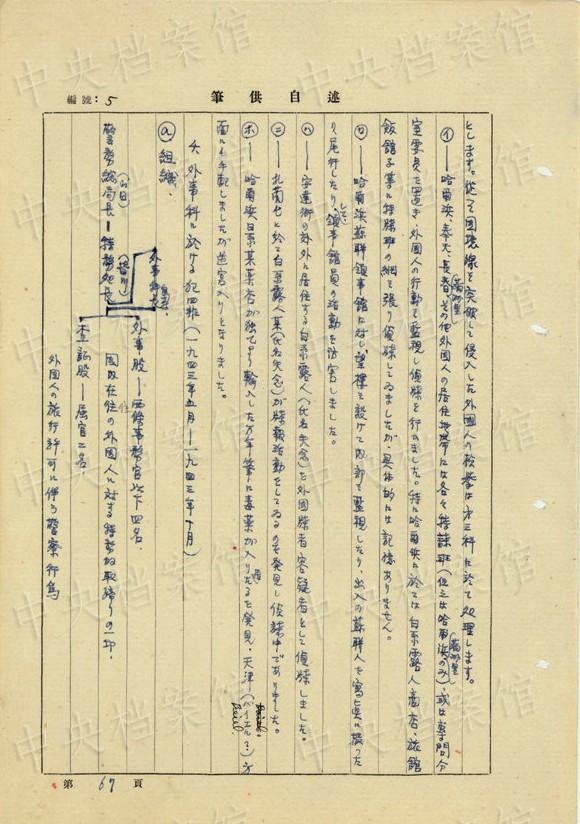 述自供筆
編號：5
とします。従て国環線を突破して侵入した外国人の検挙は分三科に於て処理します。
(イ)—哈爾浜、奉天、長春、その他外国人の居住地帯には各々特諜班(但し は哈爾浜のみ)或は専門分
満州里
室要員を置き、外国人の行動を監視し偵諜を行ひました。特に哈爾浜に於ては白系露人商店、旅館
飯館子等に特諜班の網を張り偵諜してゐましたが、具体的には記憶ありません。
(ロ)—哈爾浜蘇聯領事館に対し、望楼を設けて内部を監視したり、出入の蘇聯人を写真に撮った
り尾行したりして、領事館員の活動を妨害しました。
(ハ)—安達街の郊外に居住する白系露人(氏名失念)を外国諜者容疑者として偵諜しました。
(ニ)—北 に於て白系露人某(氏名失念)が諜報活動をしてゐるのを発見し偵諜中でありました。
(ホ)—哈爾浜日系某薬店が独乙より輸入した万年筆に毒薬が入りたるを発見、天津(バイエル)方
面に手配しましたが迷宮入りとなりました。
外事科に於ける犯罪(一九四三年五月—一九四三年十月)
(a) 組織、
警務総局長—特務処長
(山田)
外事科長
外事股—西條事務官以下四名、
国内在住の外国人に対する特務的取締りの一部、
査証股—属官二名、
外国人の旅行許可に伴ふ警察行為
第 67 頁
中央档案馆